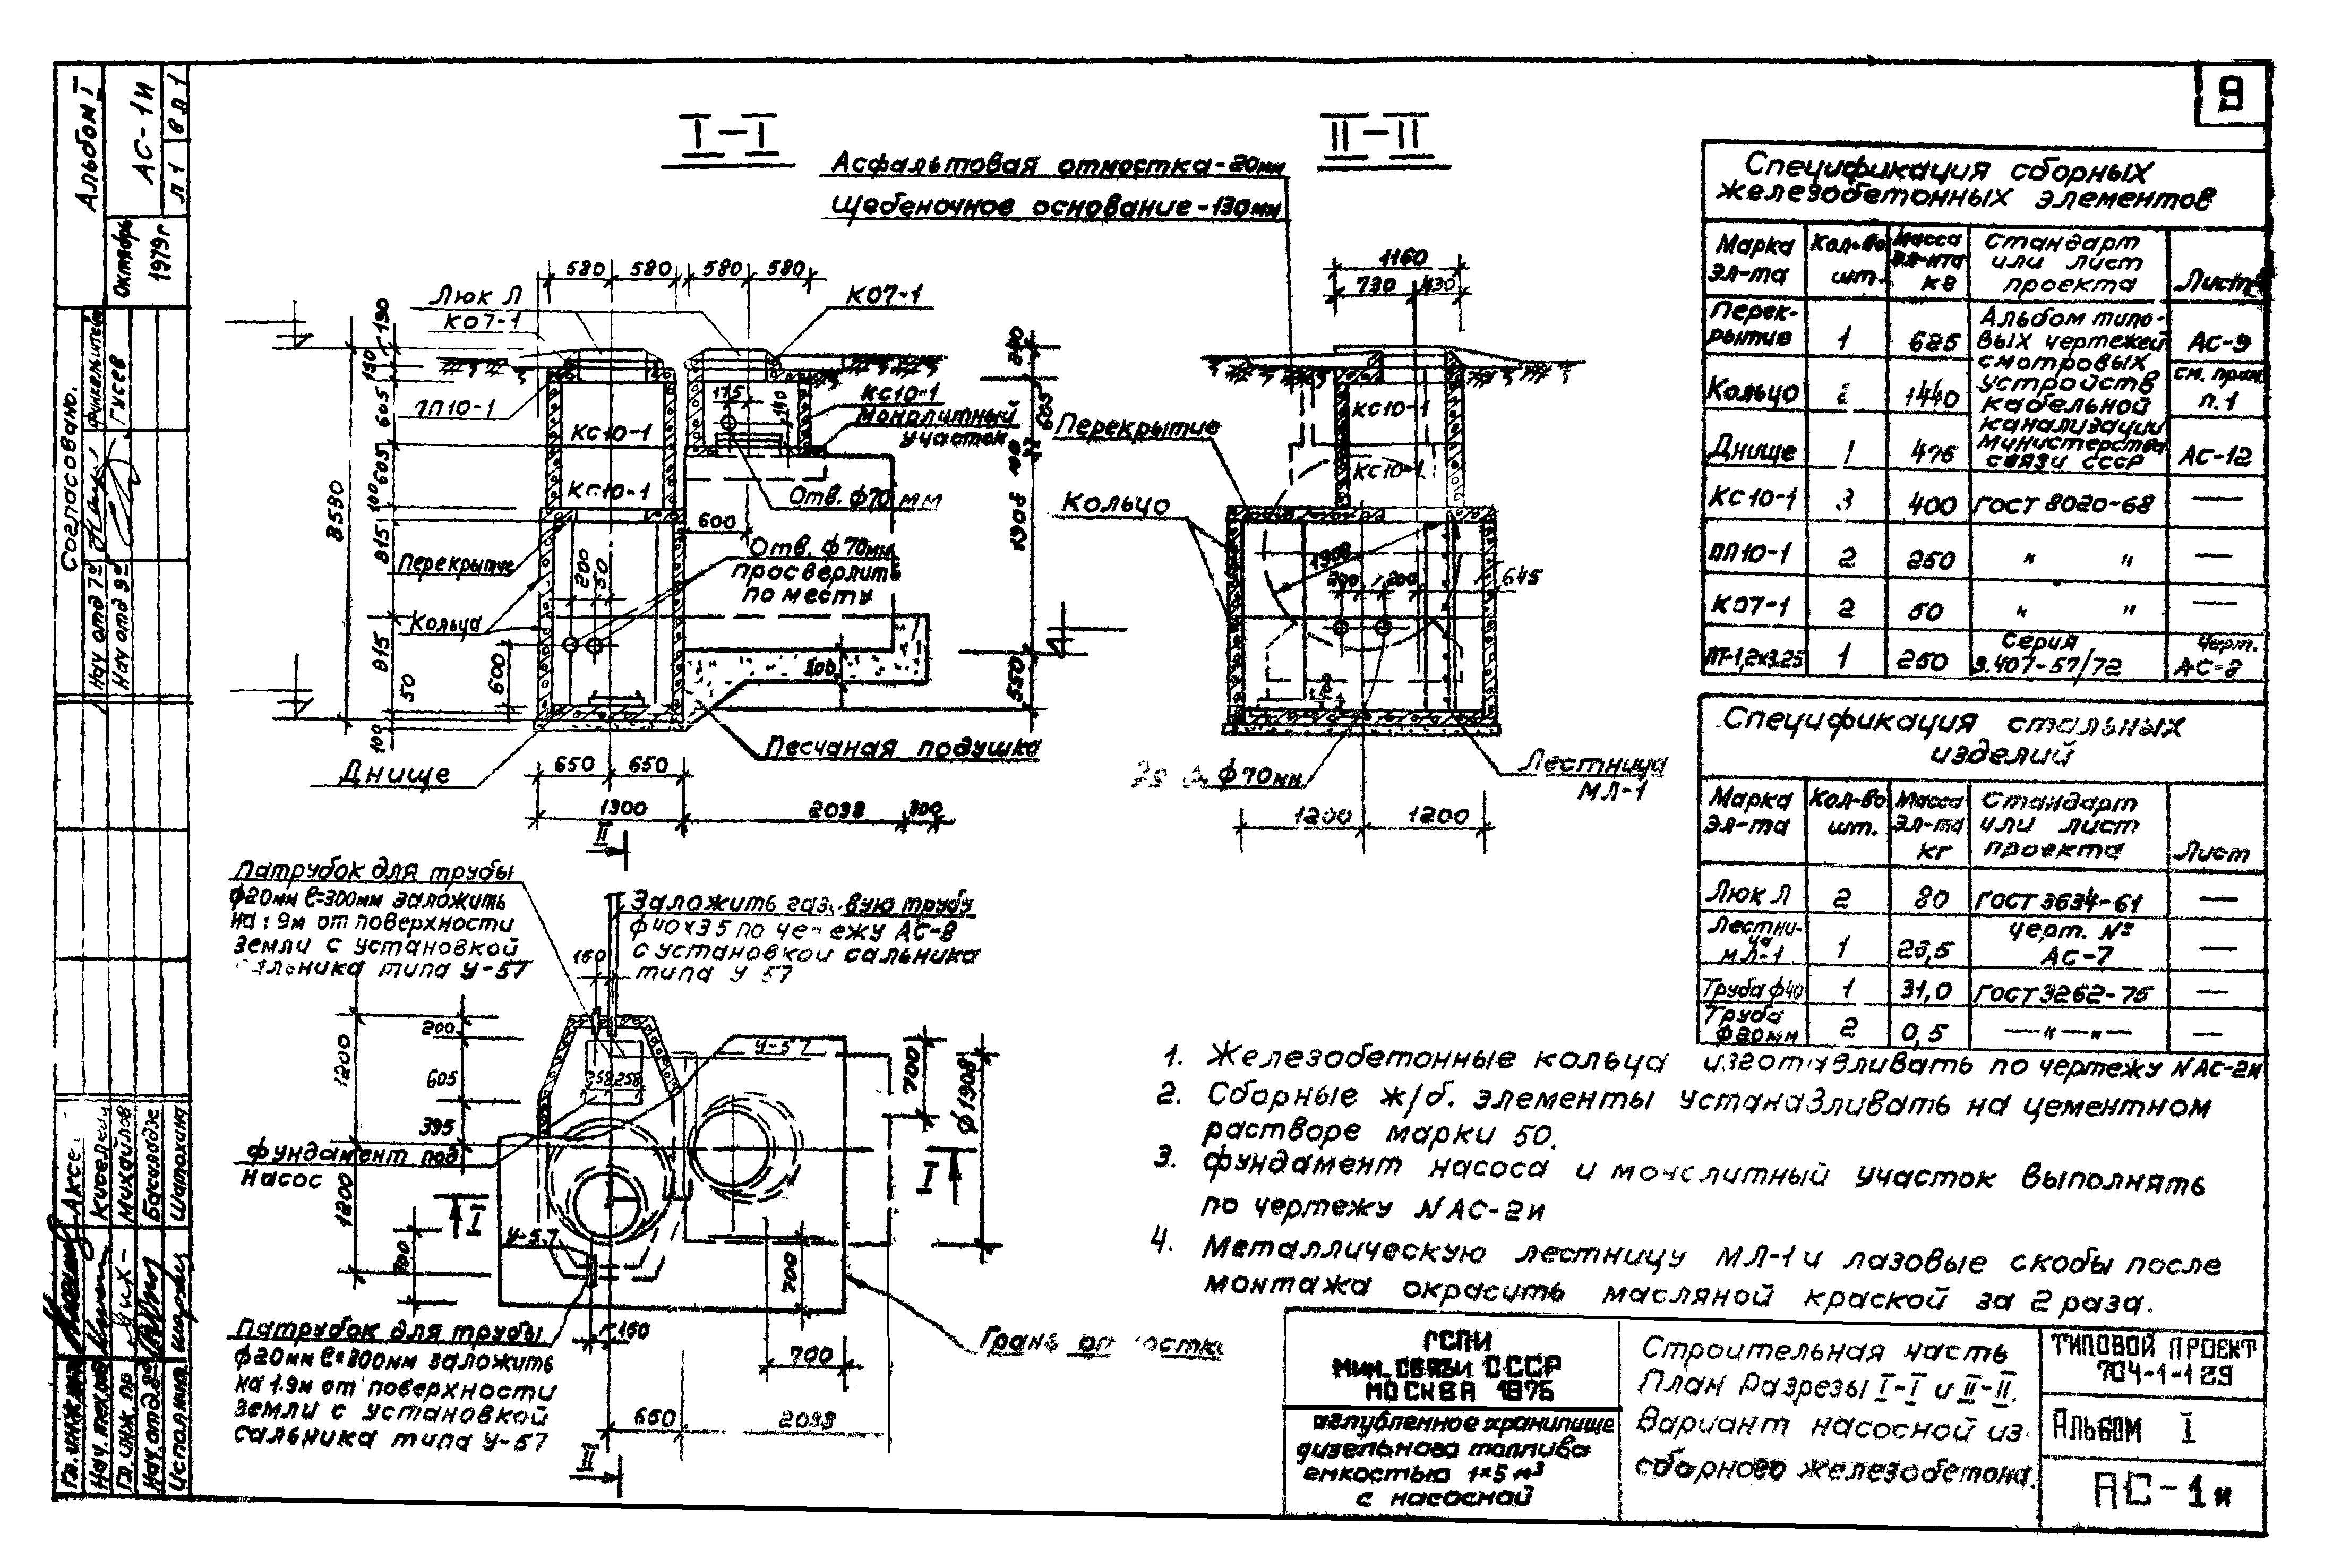 9
Альбом I
АС-1И
л 1
в л 1
Октябрь
1979г
Согласовано:
Гусев
Нач отд 7
Нач отд 9
Киселев
Михайлов
Гл. инж. пр
Нач. отд.
Исполнил
I-I
II-II
Асфальтовая отмостка-20мм
Щебеночное основание-130мм
580 580 580 580
Люк Л
КО7-1
КО7-1
ПП10-1
КС10-1
КС10-1
КС10-1
Монолитный
участок
175
140
Отв. ф70 мм
600
Отв. ф70мм
просверлить
по месту
Перекрытие
Кольца
200
50
600
190
150
605
605
100
815
815
50
100
Песчаная подушка
Днище
650 650
1300
2098
300
240
605
100
1908
550
1160
730
430
КС10-1
КС10-1
Перекрытие
Кольцо
1908
200 200
645
ф70мм
Лестница
МЛ-1
1200 1200
II
Патрубок для трубы
ф20мм ℓ=300мм заложить
от поверхности
земли с установкой
сальника типа У-57
Заложить трубу
ф40х3.5 по АС-8
с установкой сальника
типа У 57
150
200
605
395
1200
1200
700
258 258
У-57
700
ф1908
фундамент под
насос
I
I
У-57
700
Грань
700
150
650
2098
Патрубок для трубы
ф20мм ℓ=300мм заложить
на 1.9м от поверхности
земли с установкой
сальника типа У-57
II
Спецификация сборных
железобетонных элементов
Марка эл-та Кол-во шт. Масса эл-та кг Стандарт или лист проекта Лист
Перек-
рытие 1 625 АС-9
Альбом типо-
вых чертежей
смотровых
устройств
кабельной
канализации
Министерства
связи СССР
Кольцо 2 1440 см. прим. п.1
Днище 1 475 АС-12
КС10-1 3 400 ГОСТ 8020-68 —
ПП10-1 2 250 " " —
КО7-1 2 50 " " —
ПТ-1,2х3.25 1 250 Серия 3.407-57/72 Черт. АС-2
Спецификация стальных
изделий
Марка эл-та Кол-во шт. Масса эл-та кг Стандарт или лист проекта Лист
Люк Л 2 80 ГОСТ 3634-61 —
Лестни-
ца
МЛ-1 1 23,5 Черт. № АС-7 —
Труба ф40 1 31,0 ГОСТ 3262-75 —
Труба
ф20мм 2 0,5 —"—"— —
1. Железобетонные кольца изготавливать по чертежу N АС-2и
2. Сборные ж/б. элементы устанавливать на цементном
растворе марки 50.
3. фундамент насоса и монолитный участок выполнять
по чертежу N АС-2и
4. Металлическую лестницу МЛ-1 и лазовые скобы после
монтажа окрасить масляной краской за 2 раза.
ГСПИ
Мин. связи СССР
Москва 1976
заглубленное хранилище
дизельного топлива
емкостью 1×5 м³
с насосной
Строительная часть
План Разрезы I-I и II-II.
Вариант насосной из
сборного железобетона.
Типовой проект
704-1-129
Альбом I
АС-1и